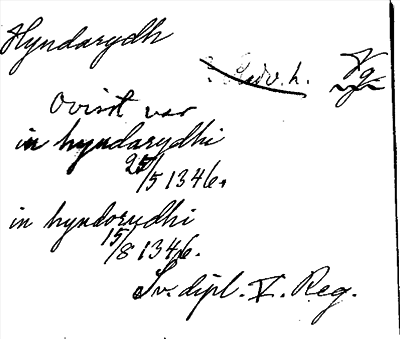 Hyndarydh
Adv. h. Vg
Ovisst var
in hyndarydhi
25/5 1346.
in hyndorydhi
15/8 1346.
Sv. dipl. V. Reg.